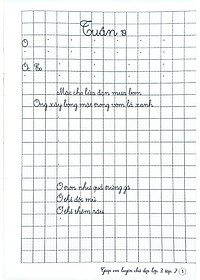 Tuần 8
O
Ơ
Mặc cho lửa đạn mưa bom
Ong xây bóng mát trong vòm lá xanh
O tròn như quả trứng gà
Ô thì đội mũ
Ơ thì thêm râu
Giúp em luyện chữ đẹp lớp 3 tập 2
1